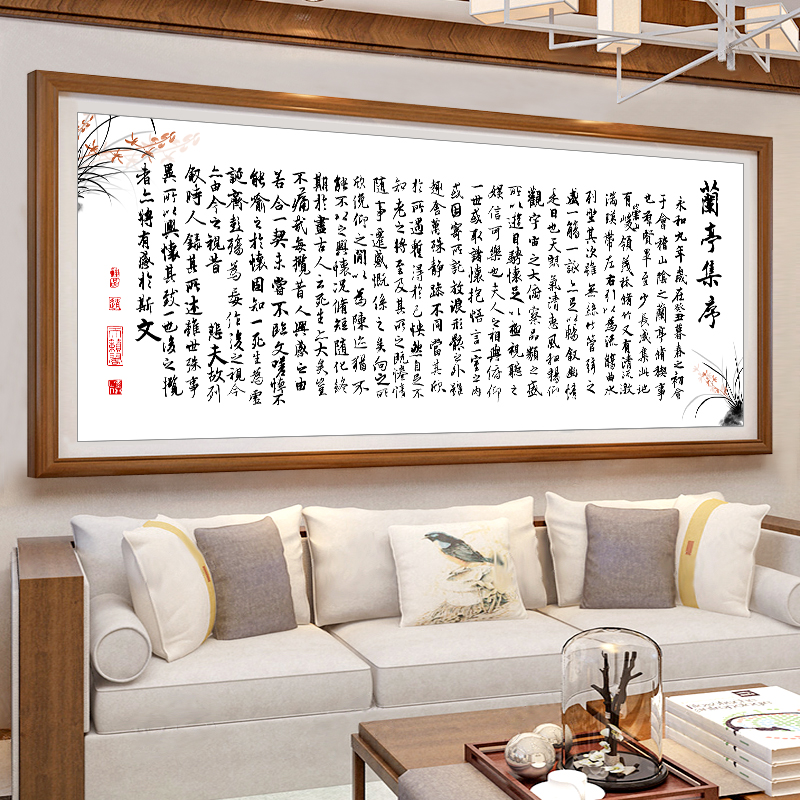 蘭亭集序
永和九年歲在癸丑暮春之初會
于會稽山陰之蘭亭脩稧事
也羣賢畢至少長咸集此地
有崇山峻領茂林脩竹又有清流激
湍暎帶左右引以為流觴曲水
列坐其次雖無絲竹管弦之
盛一觴一詠亦足以暢敘幽情
是日也天朗氣清惠風和暢仰
觀宇宙之大俯察品類之盛
所以遊目騁懷足以極視聽之
娛信可樂也夫人之相與俯仰
一世或取諸懷抱悟言一室之內
或因寄所託放浪形骸之外雖
趣舍萬殊靜躁不同當其欣
於所遇暫得於己快然自足不
知老之將至及其所之既惓情
隨事遷感慨係之矣向之所
欣俛仰之間以為陳迹猶不
能不以之興懷況脩短隨化終
期於盡古人云死生亦大矣豈
不痛哉每攬昔人興感之由
若合一契未嘗不臨文嗟悼不
能喻之於懷固知一死生為虛
誕齊彭殤為妄作後之視今
亦由今之視昔 悲夫故列
敘時人錄其所述雖世殊事
異所以興懷其致一也後之攬
者亦將有感於斯文